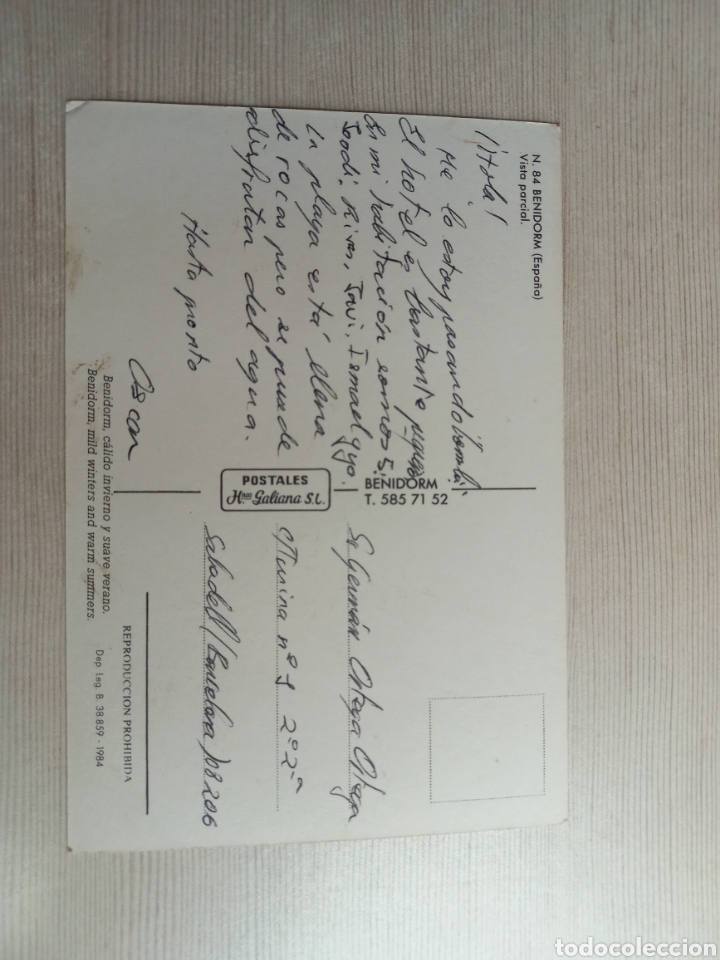 N. 84 BENIDORM (España)
Vista parcial.
¡¡Hola!
Me lo estoy pasando bomba.
El hotel es bastante pequeño
En mi habitación somos 5,
Jordi, Rives, Javi, Ismael y yo.
La playa está llena
de rocas pero se puede
disfrutar del agua.
Hasta pronto
Oscar
Benidorm, cálido invierno y suave verano.
Benidorm, mild winters and warm summers.
POSTALES
Hnos Galiana S.L.
BENIDORM
T. 585 71 52
Sr Germán Ortega Ortega
nº 9 2º 2ª
Sabadell/Barcelona/08206
REPRODUCCION PROHIBIDA
Dep. Leg. B. 38.859 - 1984
todocoleccion